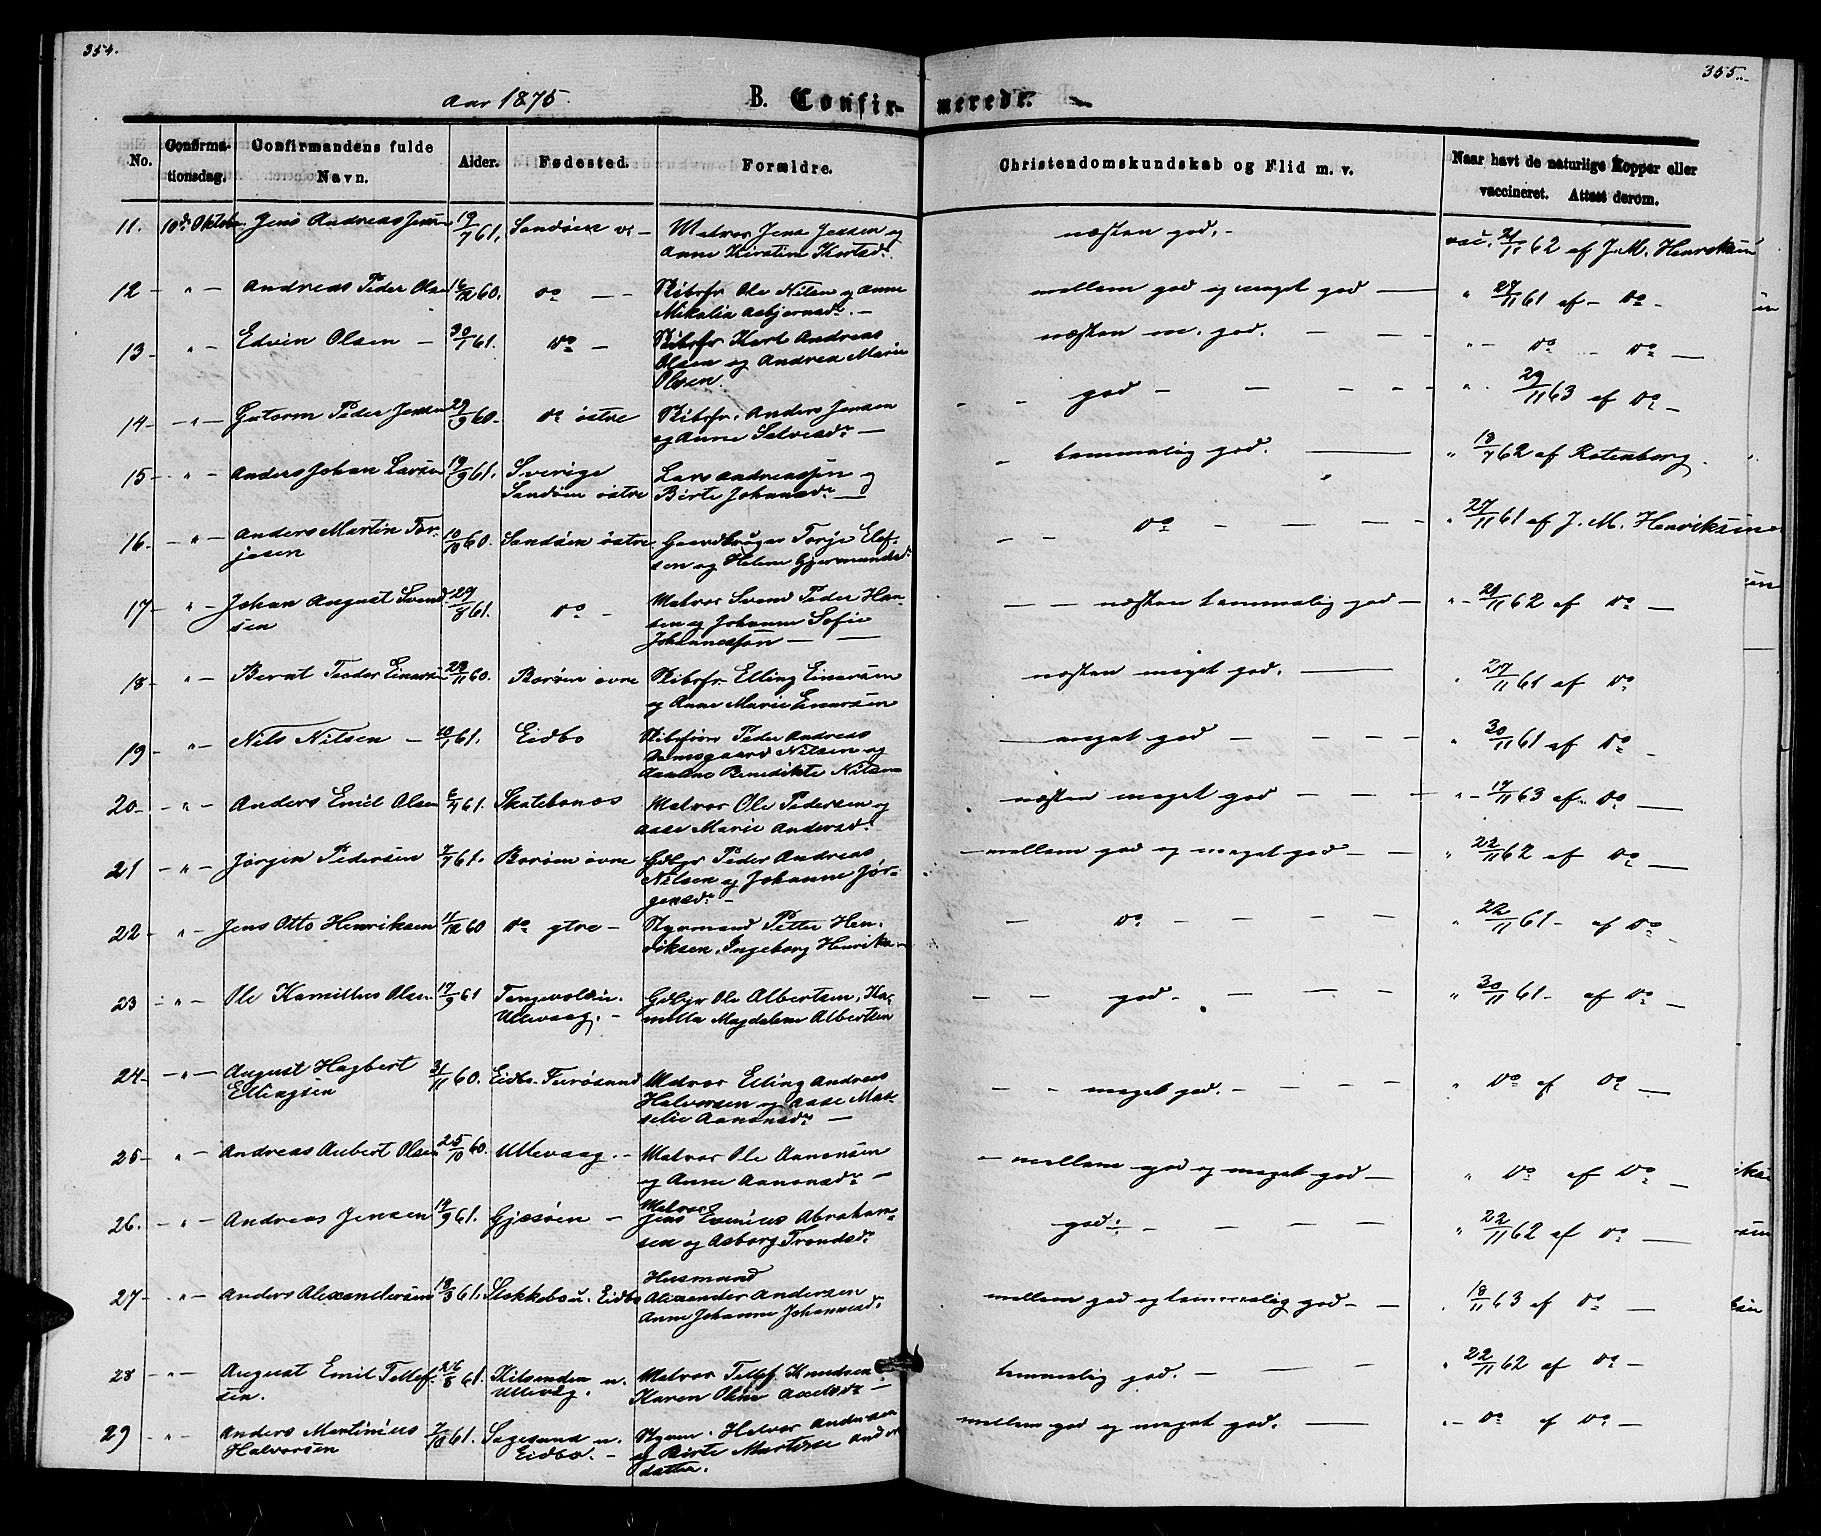 354.
355.
Aar 1875.
B. Confir-
merede.
No.
Confirma-
tionsdag.
Confirmandens fulde
Navn.
Alder.
Fødested.
Forældre.
Christendomskundskab og Flid m. v.
Naar havt de naturlige Kopper eller
vaccineret. Attest derom.
11. 10de Oktob. Jens Andreas Jensen 19/7 61. Sandøen v. – Matros Jens Jensen og
Anne Kirstine
næsten god. – vac. 21/11 62 af J. M. Henriksen
12 – " – Andreas Peder Olsen 16/12 60. Do – – Skibsfr. Ole Nilsen og Anne
Mikalia Asbjørnsdr. –
mellem god og meget god — " 27/11 61 af – Do –
13 – " – Edvin Olsen – 30/7 61. Do – Skibsfr. Karl Andreas
Olsen og Andrea Marie
Olsen.
næsten m. god. – – – " – Do – Do —
14 – – " – Gutorm Peder Jensen 29/9 60. Do østre Skibsfr. Anders Jensen
og Anne Salvesdr. —
– – god – – – – " 29/11 63 af Do –
15 – " – Anders Johan Larsen 19/9 61. Sverige
Sandøen østre
Lars Andreassen og
Birte Johansdr. —
– temmelig god. — " 18/7 62 af Rotenborg.
16. – " – Anders Martin Tor-
jesen
10/10 60. Sandøen østre Gaardbruger Torje Elef-
sen og Helene Gjermundsdr.
– – Do – – – – " 27/11 61 af J. M. Henriksen
17 – " – Johan August Svend-
sen
29/8 61. Do – Matros Svend Peder Han-
sen og Johanne Sofie
Johannessen — —
– – næsten temmelig god – " – 21/11 62 af Do —
18 – " – Bernt Teodor Einarsen 28/11 60. Borøen øvre Skibsfr. Elling Einarsen
og Anne Marie Einarsen
næsten meget god. — " 27/11 61 af Do
19 – " – Nils Nilsen – 10/1 61. Eidbo Skibsfører Peder Andreas
Nilsen og
Benedikte Nilsen
– meget god – – – – " 30/11 61 af Do –
20 – – " – Anders Emil Olsen 6/4 61. Matros Ole Pedersen og
Aase Marie Andersdr.
næsten meget god – – – – " – 17/11 63 af Do —
21 – " – Jørgen Pedersen 7/7 61. Borøen øvre Gdbgr Peder Andreas
Nilsen og Johanne Jør-
gensdr. –
– mellem god og meget god – – " 22/11 62 af Do —
22 – " – Jens Otto Henriksen 11/12 60 Do ytre – Styrmand Petter Hen-
riksen, Ingeborg Henriksen
– Do – – – – " 22/11 61 – af Do –
23 – " – Ole Kamillus Olsen 17/9 61
Ullevaag. –
Gdbgr Ole Albertsen, Ka-
milla Magdalene Albertsen
– – god – – – – " 30/11 61 – af Do –
24 – – " – August Hagbert
Ellingsen
60. Eidbo Matros Elling Andreas
Halvorsen og Aase
Aanonsdr. —
– – meget god. – – – – " Do af Do —
25 – " – Andreas Aubert Olsen 25/10 60. Ullevaag. – Matros Ole Aanonsen
og Anne Aanonsdr. –
– mellem god og meget god – " Do af Do –
26. – " – Andreas Jensen 19/9 61. Gjæsøen – Matros
Jens Abraham-
sen og Asborg Trondsdr.
god. – – – – – " 22/11 62 af Do —
27 – " – Anders Alexandersen 18/3 61. Stokkebo u. Eidbo Husmand
Alexander Andersen
Anne Johanne Johansdr.
mellem god og temmelig god – – " 18/11 63 af Do —
28 – " – August Emil Tellef-
sen.
26/8 61. Kilsunden u.
Ullevåg.
Matros Tellef Knudsen
Karen Axelsdr. –
temmelig god. – – – – " 22/11 62 af Do –
29 – " – Anders Martinius
Halvorsen
7/10 61. Sagesund u.
Eidbo. –
Styrm. Halvor Andersen
og Birte Marthe
datter.
mellem god og meget god. — " – Do af Do –